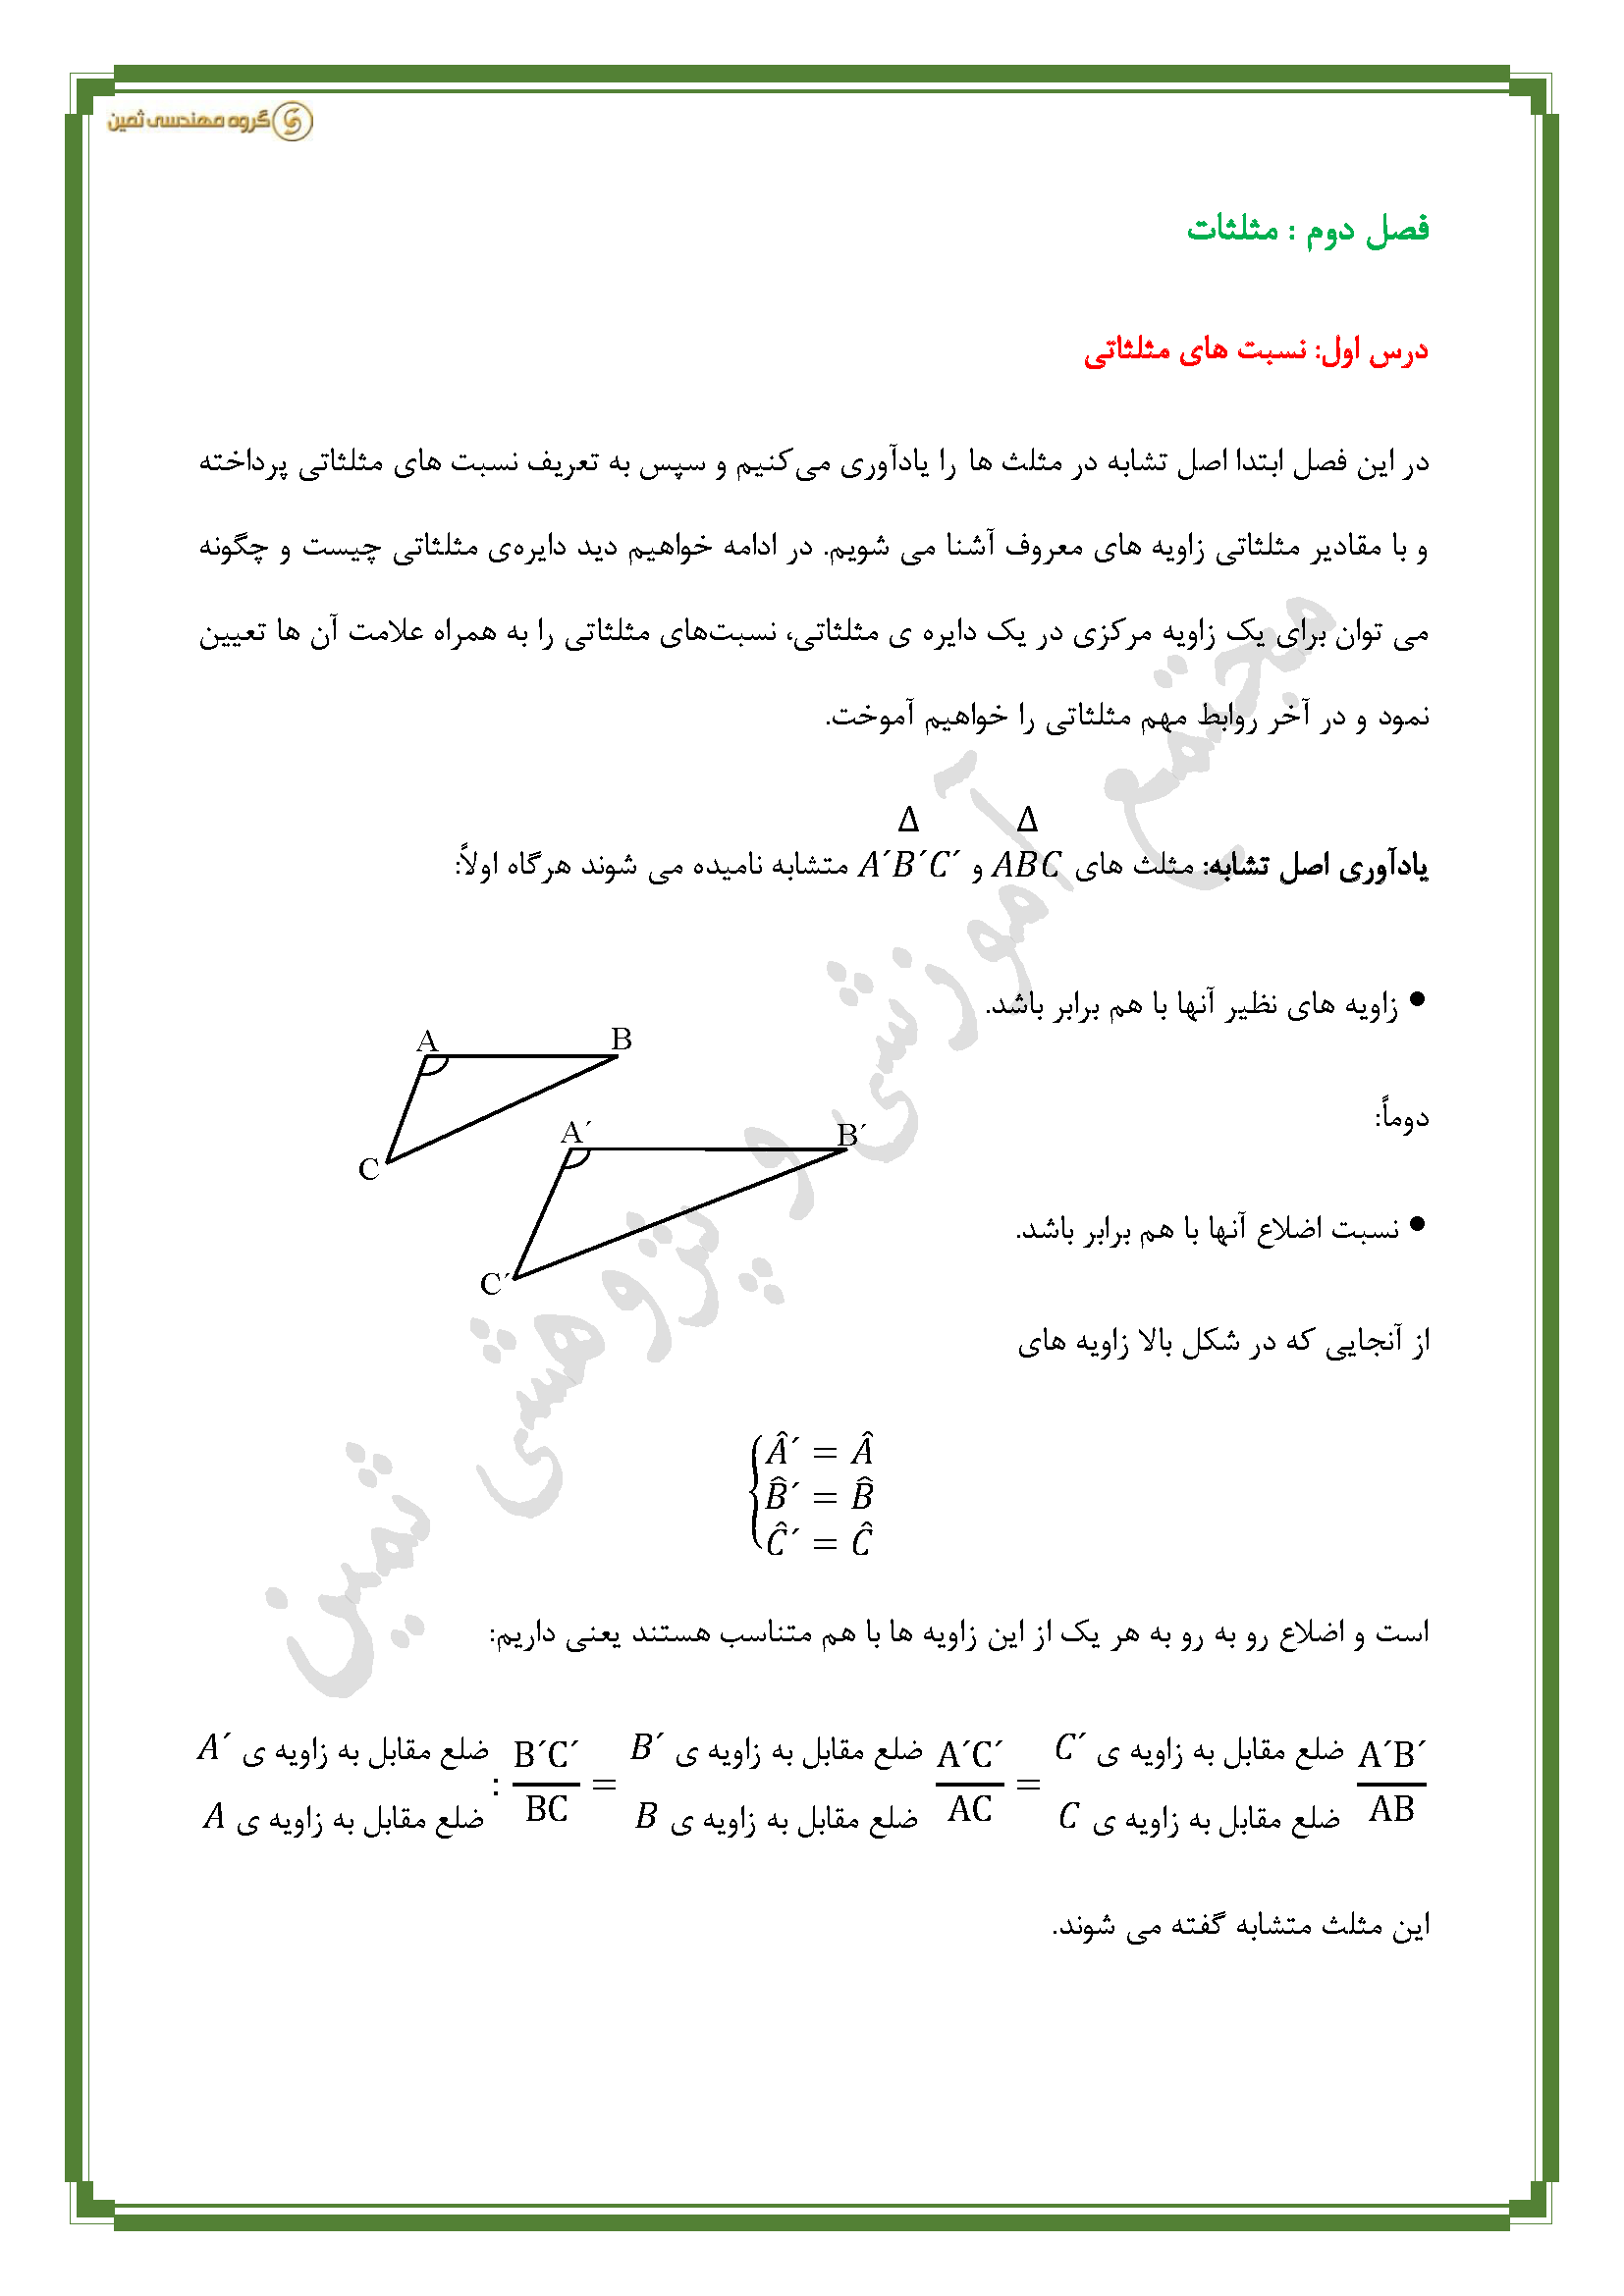 گروه مهندسی ثمین
فصل دوم : مثلثات
درس اول: نسبت های مثلثاتی
در این فصل ابتدا اصل تشابه در مثلث ها را یادآوری می‌کنیم و سپس به تعریف نسبت های مثلثاتی پرداخته
و با مقادیر مثلثاتی زاویه های معروف آشنا می شویم. در ادامه خواهیم دید دایره‌ی مثلثاتی چیست و چگونه
می توان برای یک زاویه مرکزی در یک دایره ی مثلثاتی، نسبت‌های مثلثاتی را به همراه علامت آن ها تعیین
نمود و در آخر روابط مهم مثلثاتی را خواهیم آموخت.
Δ Δ
یادآوری اصل تشابه: مثلث های ABC و A´B´C´ متشابه نامیده می شوند هرگاه اولاً:
• زاویه های نظیر آنها با هم برابر باشد.
A B
دوماً:
A´ B´
C
• نسبت اضلاع آنها با هم برابر باشد.
C´
از آنجایی که در شکل بالا زاویه های
Â´ = Â
B̂´ = B̂
Ĉ´ = Ĉ
است و اضلاع رو به رو به هر یک از این زاویه ها با هم متناسب هستند یعنی داریم:
A´B´ ضلع مقابل به زاویه ی C´ A´C´ ضلع مقابل به زاویه ی B´ B´C´ ضلع مقابل به زاویه ی A´
= = :
AB ضلع مقابل به زاویه ی C AC ضلع مقابل به زاویه ی B BC ضلع مقابل به زاویه ی A
این مثلث متشابه گفته می شوند.
مجتمع آموزشی و پژوهشی ثمین